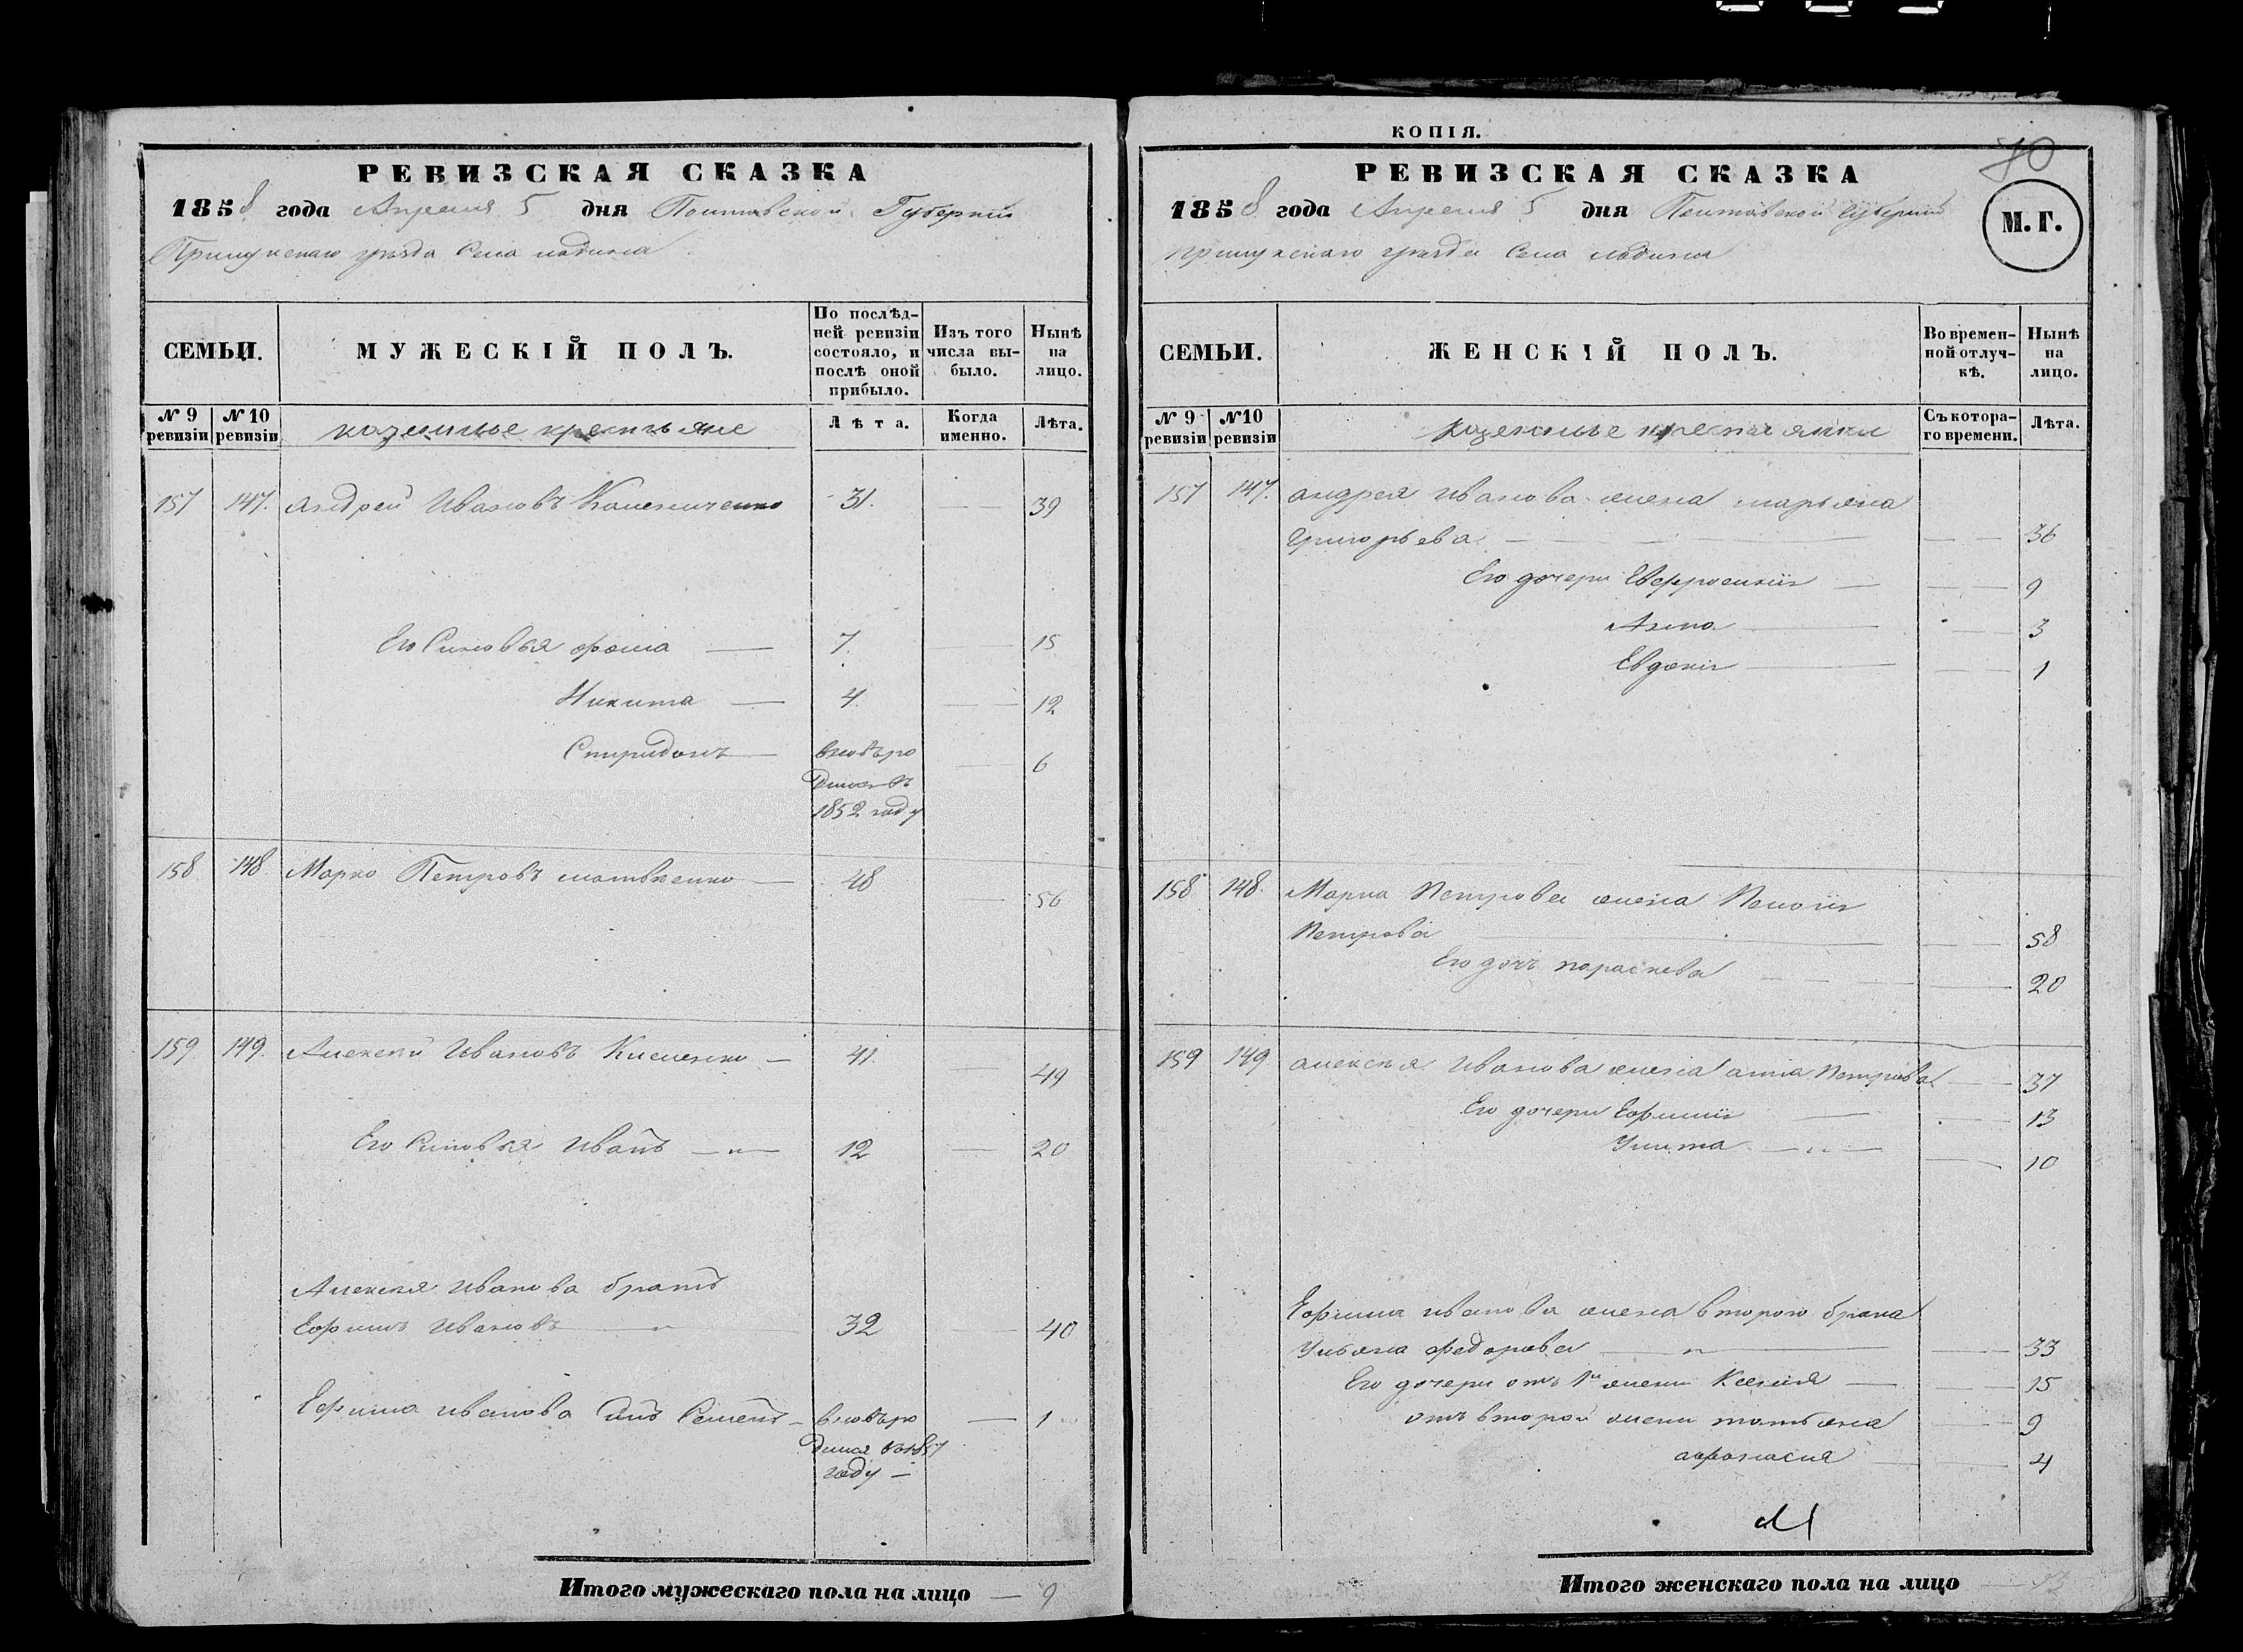 РЕВИЗСКАЯ СКАЗКА
1858 года Апреля 5 дня Полтавской Губернии
Прилукскаго уезда Села
СЕМЬИ.
МУЖЕСКІЙ ПОЛЪ.
По послѣд-
ней ревизіи
состояло, и
послѣ оной
прибыло.
Изъ того
числа вы-
было.
Нынѣ
на
лицо.
№ 9
ревизіи
№ 10
ревизіи
казенные крестьяне
Лѣта.
Когда
именно.
Лѣта.
157 147. Андрей Ивановъ 31. 39
Его Сыновья фома 7. 15
Никита 4. 12
Спиридонъ вновьро 6
дился въ
1852 году
158 148. Марко Петровъ матвѣенко 48 56
159. 149. Алексѣй Ивановъ Киселенко 41. 49
Его Сыновья Иванъ 12 20
Алексѣя Иванова братъ
Ефимъ Ивановъ 32 40
Ефима иванова Сынъ Семенъ вновьро 1
дился въ 1857
году
Итого мужескаго пола на лицо 9
КОПІЯ.
70
РЕВИЗСКАЯ СКАЗКА
1858 года Апреля 5 дня Полтавской Губернии
прилукскаго уезда Села
М. Г.
СЕМЬИ.
ЖЕНСКІЙ ПОЛЪ.
Во времен-
ной отлуч-
кѣ.
Нынѣ
на
лицо.
№ 9
ревизіи
№ 10
ревизіи
казенные крестьянки
Съ котора-
го времени.
Лѣта.
157 147. андрея Иванова жена марьяна
Григорьева 36
Его дочери Евфросинія 9
Анна 3
Евдокія 1
158 148. Марка Петрова жена
Петрова 58
Его дочь параскева 20
159 149. алексѣя Иванова жена анна Петрова 37
Его дочери Ефимія 13
Улита 10
Ефима иванова жена второго брака
Ульяна федорова 33
Его дочери отъ 1й жены Ксенія 15
отъ второй жены татьяна 9
афанасия 4
Итого женскаго пола на лицо 13